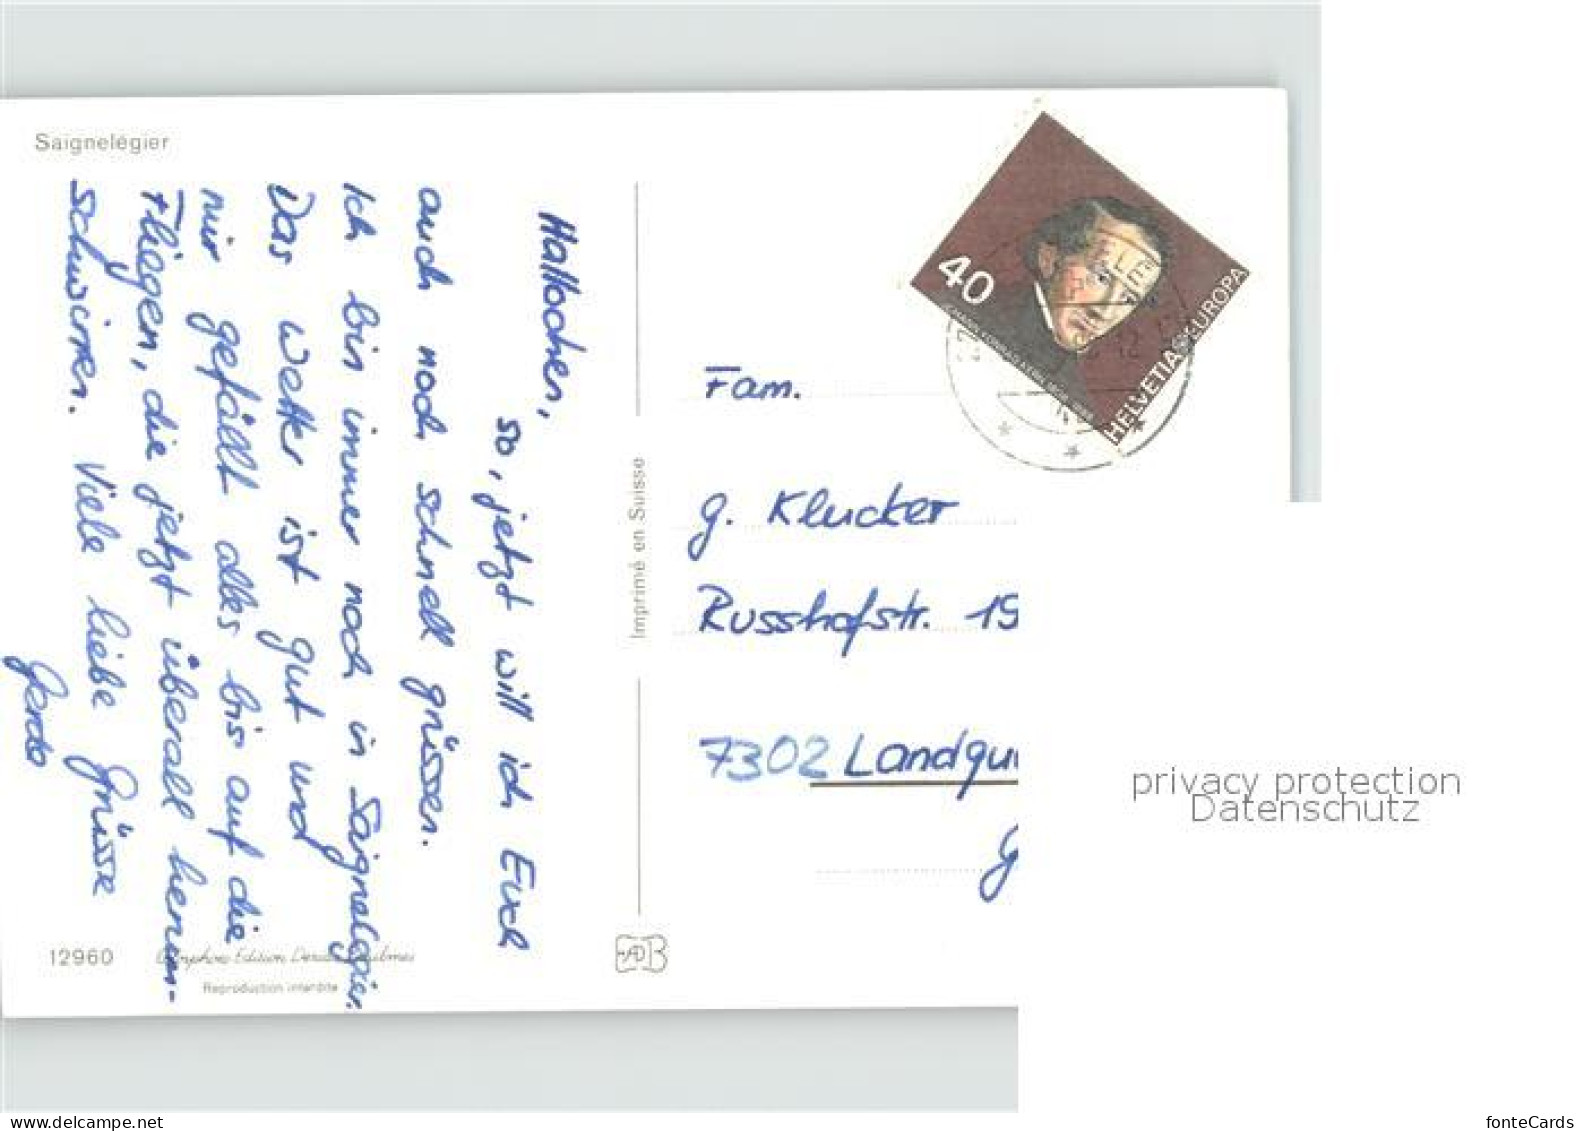 Saignelégier
Hallochen,
so, jetzt will ich Euch
auch noch schnell grüssen.
Ich bin immer noch in Saignelegier.
Das Wetter ist gut und
mir gefällt alles bis auf die
Fliegen, die jetzt überall herum-
schwirren. Viele liebe Grüsse
Gerda
12960
Edition
Reproduction interdite
Imprimé en Suisse
40
HELVETIA EUROPA
Fam.
G. Klucker
Russhofstr. 19
7302 Landqu
G
privacy protection
Datenschutz
https://www.ansichtskarten-center.de/
fonteCards